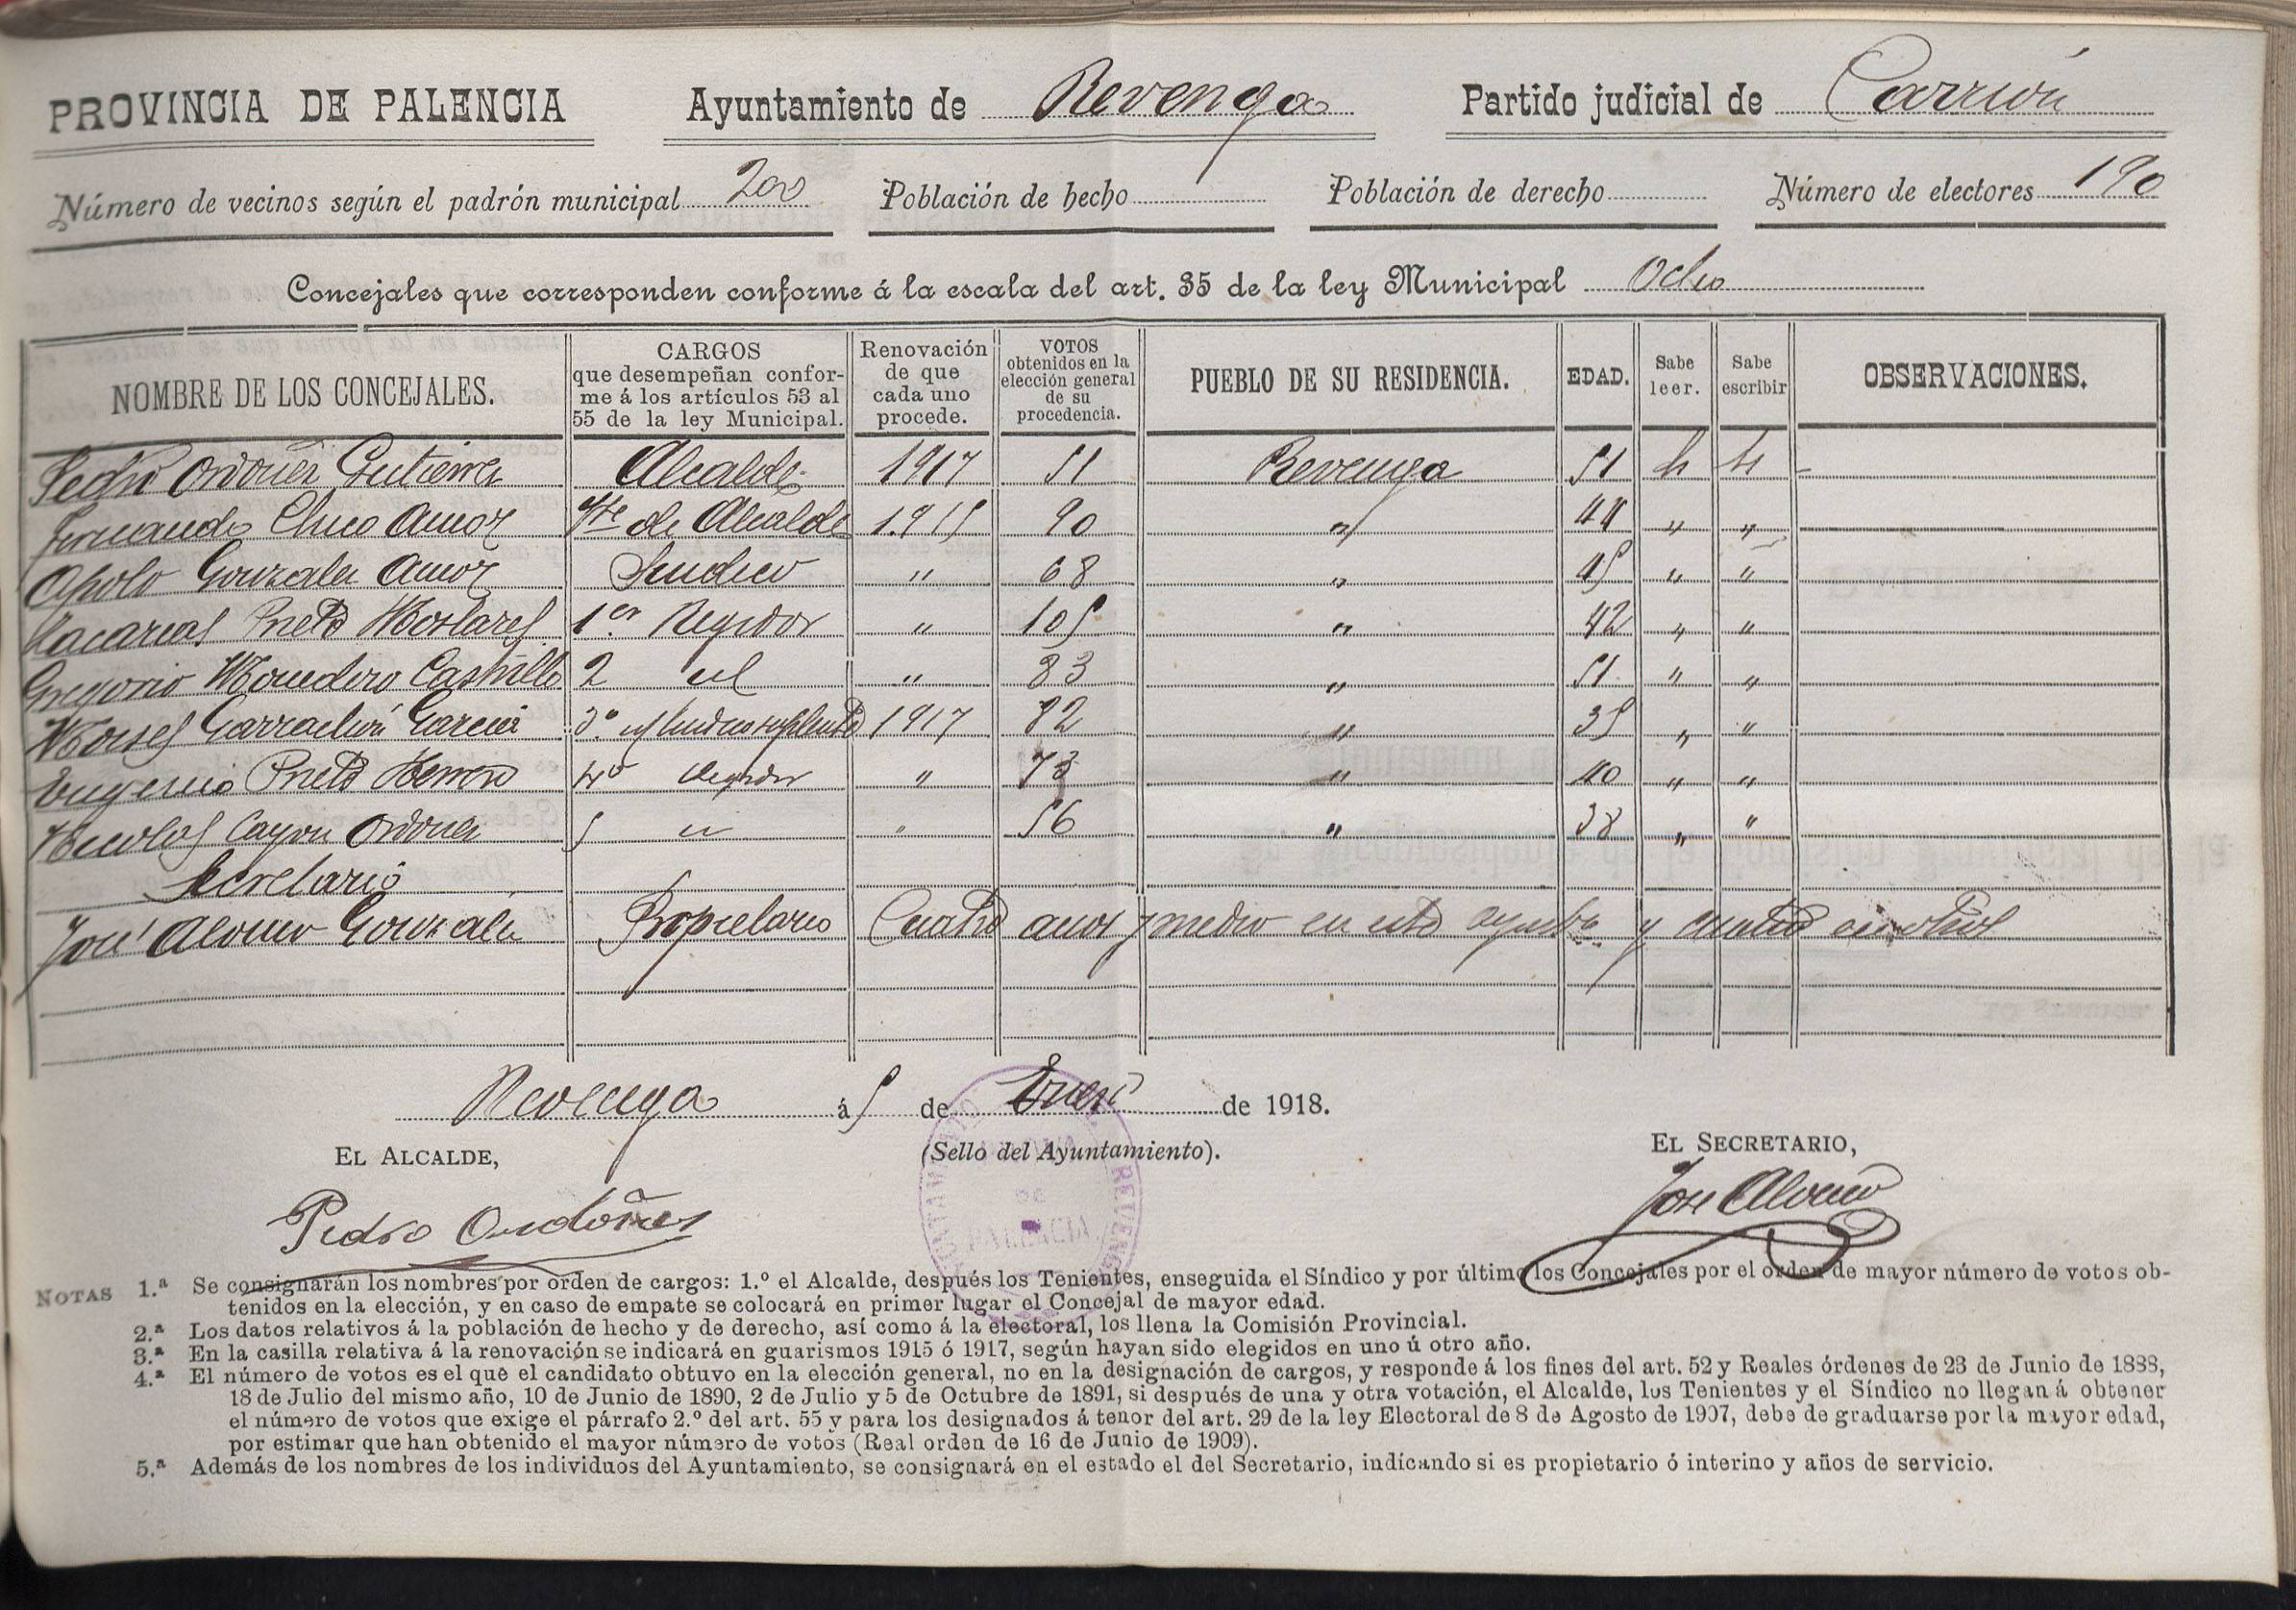 PROVINCIA DE PALENCIA Ayuntamiento de Revenga Partido judicial de Carrión
Número de vecinos según el padrón municipal 200 Población de hecho Población de derecho Número de electores 190
Concejales que corresponden conforme á la escala del art. 35 de la ley Municipal Ocho
NOMBRE DE LOS CONCEJALES. CARGOS que desempeñan conforme á los artículos 53 al 55 de la ley Municipal. Renovación de que cada uno procede. VOTOS obtenidos en la elección general de su procedencia. PUEBLO DE SU RESIDENCIA. EDAD. Sabe leer. Sabe escribir OBSERVACIONES.
Pedro Ordoñez Gutierrez Alcalde 1917 51 Revenga 51 si si
Fernando Chico Amor Tte de Alcalde 1915 90 " 44 " "
Apolo Gonzalez Amor Sindico " 68 " 45 " "
Macarias Prieto Mostares 1er Regidor " 105 " 42 " "
Gregorio Monedero Castrillo 2 id " 83 " 51 " "
Moises Garrachón Garcia 3º id sindico suplente 1917 82 " 35 " "
Eugenio Prieto Herrero 4º Regidor " 73 " 40 " "
Nicolas Cayon Ordoñez 5 id " 56 " 38 " "
Secretario
José Alonso Gonzalez Propietario Cuatro años y medio en este Ayunto y cuatro en otros
Revenga á 5 de Enero de 1918.
EL ALCALDE, (Sello del Ayuntamiento). EL SECRETARIO,
REVENGA
DE
PALENCIA
Pedro Ordoñez Jose Alonso
NOTAS 1.ª Se consignarán los nombres por orden de cargos: 1.º el Alcalde, después los Tenientes, enseguida el Síndico y por último los Concejales por el orden de mayor número de votos ob-
tenidos en la elección, y en caso de empate se colocará en primer lugar el Concejal de mayor edad.
2.ª Los datos relativos á la población de hecho y de derecho, así como á la electoral, los llena la Comisión Provincial.
3.ª En la casilla relativa á la renovación se indicará en guarismos 1915 ó 1917, según hayan sido elegidos en uno ú otro año.
4.ª El número de votos es el que el candidato obtuvo en la elección general, no en la designación de cargos, y responde á los fines del art. 52 y Reales órdenes de 23 de Junio de 1888,
18 de Julio del mismo año, 10 de Junio de 1890, 2 de Julio y 5 de Octubre de 1891, si después de una y otra votación, el Alcalde, los Tenientes y el Síndico no llegan á obtener
el número de votos que exige el párrafo 2.º del art. 55 y para los designados á tenor del art. 29 de la ley Electoral de 8 de Agosto de 1907, debe de graduarse por la mayor edad,
por estimar que han obtenido el mayor número de votos (Real orden de 16 de Junio de 1909).
5.ª Además de los nombres de los individuos del Ayuntamiento, se consignará en el estado el del Secretario, indicando si es propietario ó interino y años de servicio.